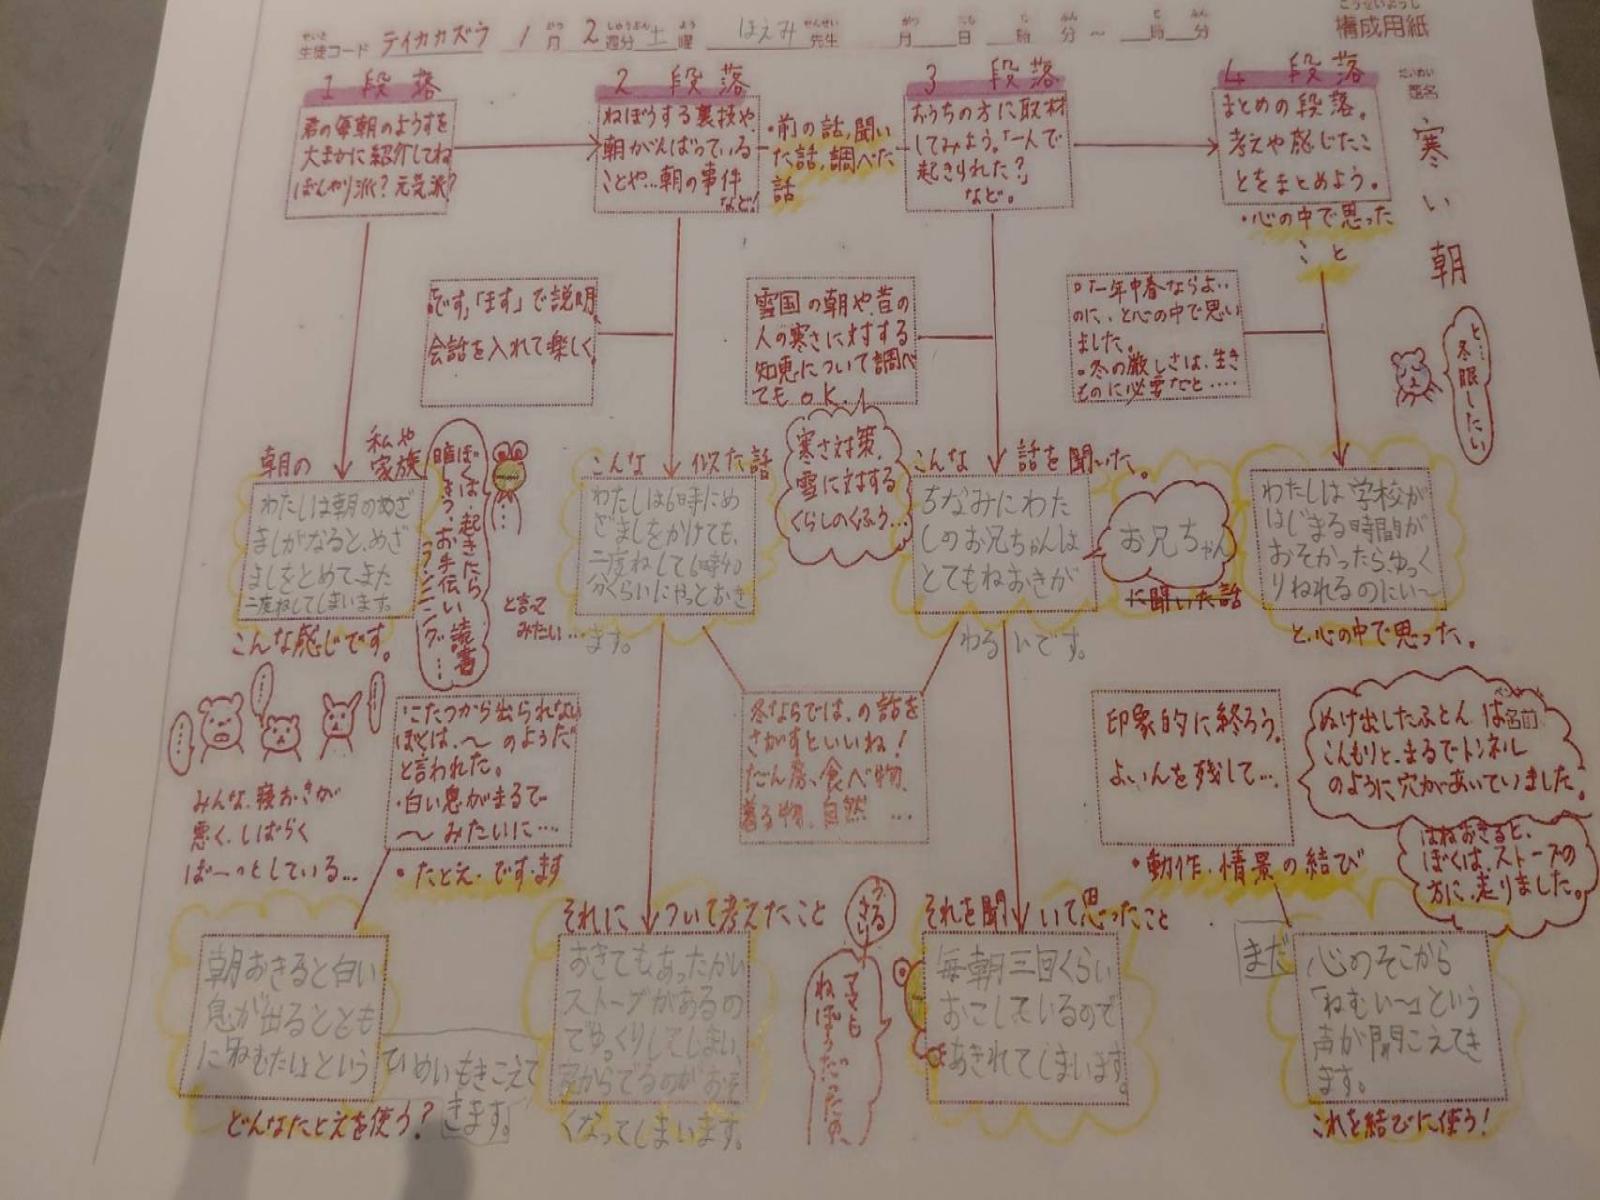 生徒コード テイカカズラ 1月 2週分 土曜 ほえみ先生 月 日 時 分 ~ 時 分
構成用紙
題名
寒い朝
1段落
君の毎朝のようすを
大まかに紹介してね
ぼんやり派?元気派?
2段落
ねぼうする裏技や、
朝がんばっている
ことや…朝の事件
など!
・前の話,聞い
た話,調べた
話
3段落
おうちの方に取材
してみよう。「一人で
起きられた?」
など。
4段落
まとめの段落。
考えや感じたこ
とをまとめよう。
・心の中で思った
こと
「です」「ます」で説明。
会話を入れて楽しく。
雪国の朝や、昔の
人の寒さに対する
知恵について調べ
てもOK!
・「一年中春ならよい
のに、と心の中で思い
ました。
・冬の厳しさは、生き
ものに必要だと……
と…冬眠したい
朝の 私や
家族
わたしは朝のめざ
ましがなると、めざ
ましをとめて、また
二度ねしてしまいます。
こんな感じです。
ぼくは、起きたら
お手伝い、読書
ランニング…
と言って
みたい…
こんな 似た話
わたしは6時にめ
ざましをかけても、
二度ねして6時40
分くらいにやっとおき
ます。
寒さ対策、
雪に対する
くらしのくふう…
こんな 話を聞いた。
ちなみにわた
しのお兄ちゃんは
とてもねおきが
わるいです。
お兄ちゃん
に聞いた話
わたしは学校が
はじまる時間が
おそかったらゆっく
りねれるのにい〜
と、心の中で思った。
みんな、寝おきが
悪く、しばらく
ぼ〜っとしている…
・こたつから出られない
ぼくは、〜のようだ
と言われた。
・白い息がまるで
〜みたいに…
・たとえ・です・ます
冬ならでは、の話を
さがすといいね!
だん房、食べ物、
着る物、自然…
印象的に終ろう。
よいんを残して…
・動作・情景の結び
ぬけ出したふとんは名前
こんもりと、まるでトンネル
のように穴があいていました。
はねおきると、
ぼくは、ストーブの
方に、走りました。
朝おきると白い
息が出るととも
に「ねむたい」という
ひめいもきこえて
きます。
どんなたとえを使う?
それについて考えたこと
おきてもあったかい
ストーブがあるの
でゆっくりしてしまい、
家からでるのがおそ
くなってしまいます。
うるさい
ママも
ねぼうだったの、
それを聞いて思ったこと
毎朝三回くらい
おこしているので
あきれてしまいます。
まだ
心のそこから
「ねむい〜」という
声が聞こえてき
ます。
これを結びに使う!